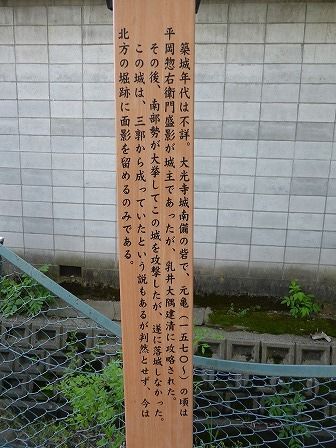 築城年代は不詳。大光寺城南備の砦で、元亀(一五七〇〜)の頃は
平岡惣右衛門盛影が城主であったが、乳井大隅建清に攻略された。
その後、南部勢が大挙してこの城を攻撃したが、遂に落城しなかった。
この城は、三郭から成っていたという説もあるが判然とせず、今は
北方の堀跡に面影を留めるのみである。